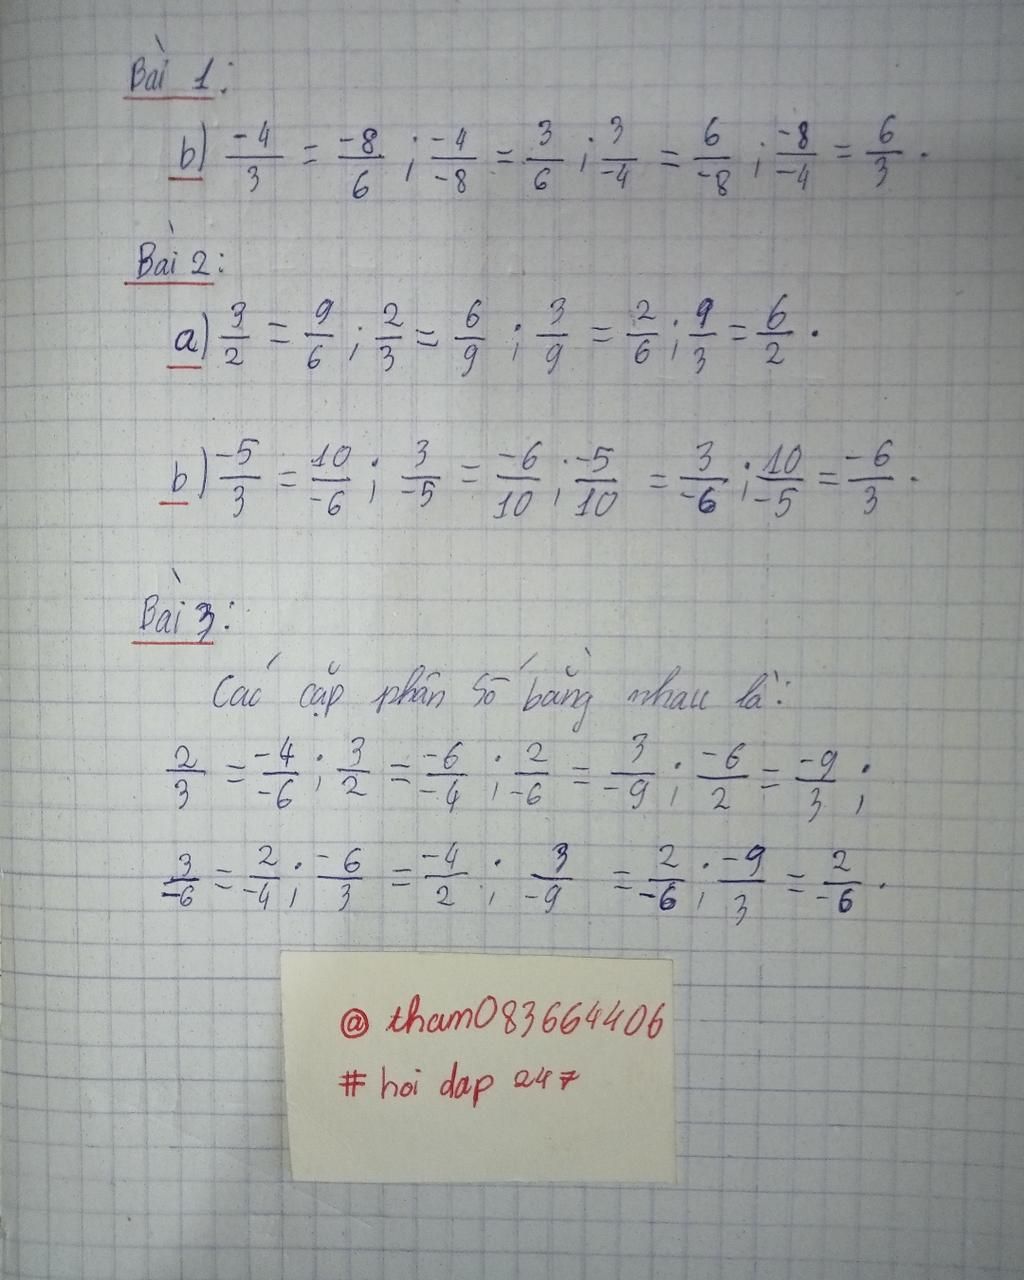 Bài 1:
b) -4/3 = -8/6 ; -4/-8 = 3/6 ; 3/-4 = 6/-8 ; -8/-4 = 6/3 .
Bài 2:
a) 3/2 = 9/6 ; 2/3 = 6/9 ; 3/9 = 2/6 ; 9/3 = 6/2 .
b) -5/3 = 10/-6 ; 3/-5 = -6/10 ; -5/10 = 3/-6 ; 10/-5 = -6/3 .
Bài 3:
Các cặp phân số bằng nhau là:
2/3 = -4/-6 ; 3/2 = -6/-4 ; 2/-6 = 3/-9 ; -6/2 = -9/3 ;
3/-6 = 2/-4 ; -6/3 = -4/2 ; 3/-9 = 2/-6 ; -9/3 = 2/-6 .
@ tham083664406
# hoi dap 247